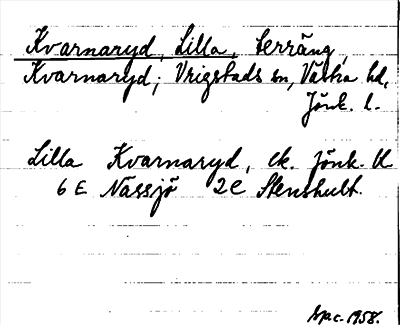 Kvarnaryd, Lilla, terräng,
Kvarnaryd; Vrigstads sn, Västra hd,
Jönk. l.
Lilla Kvarnaryd, ek. Jönk. bl
6 E Nässjö 2e Stenshult.
1958.